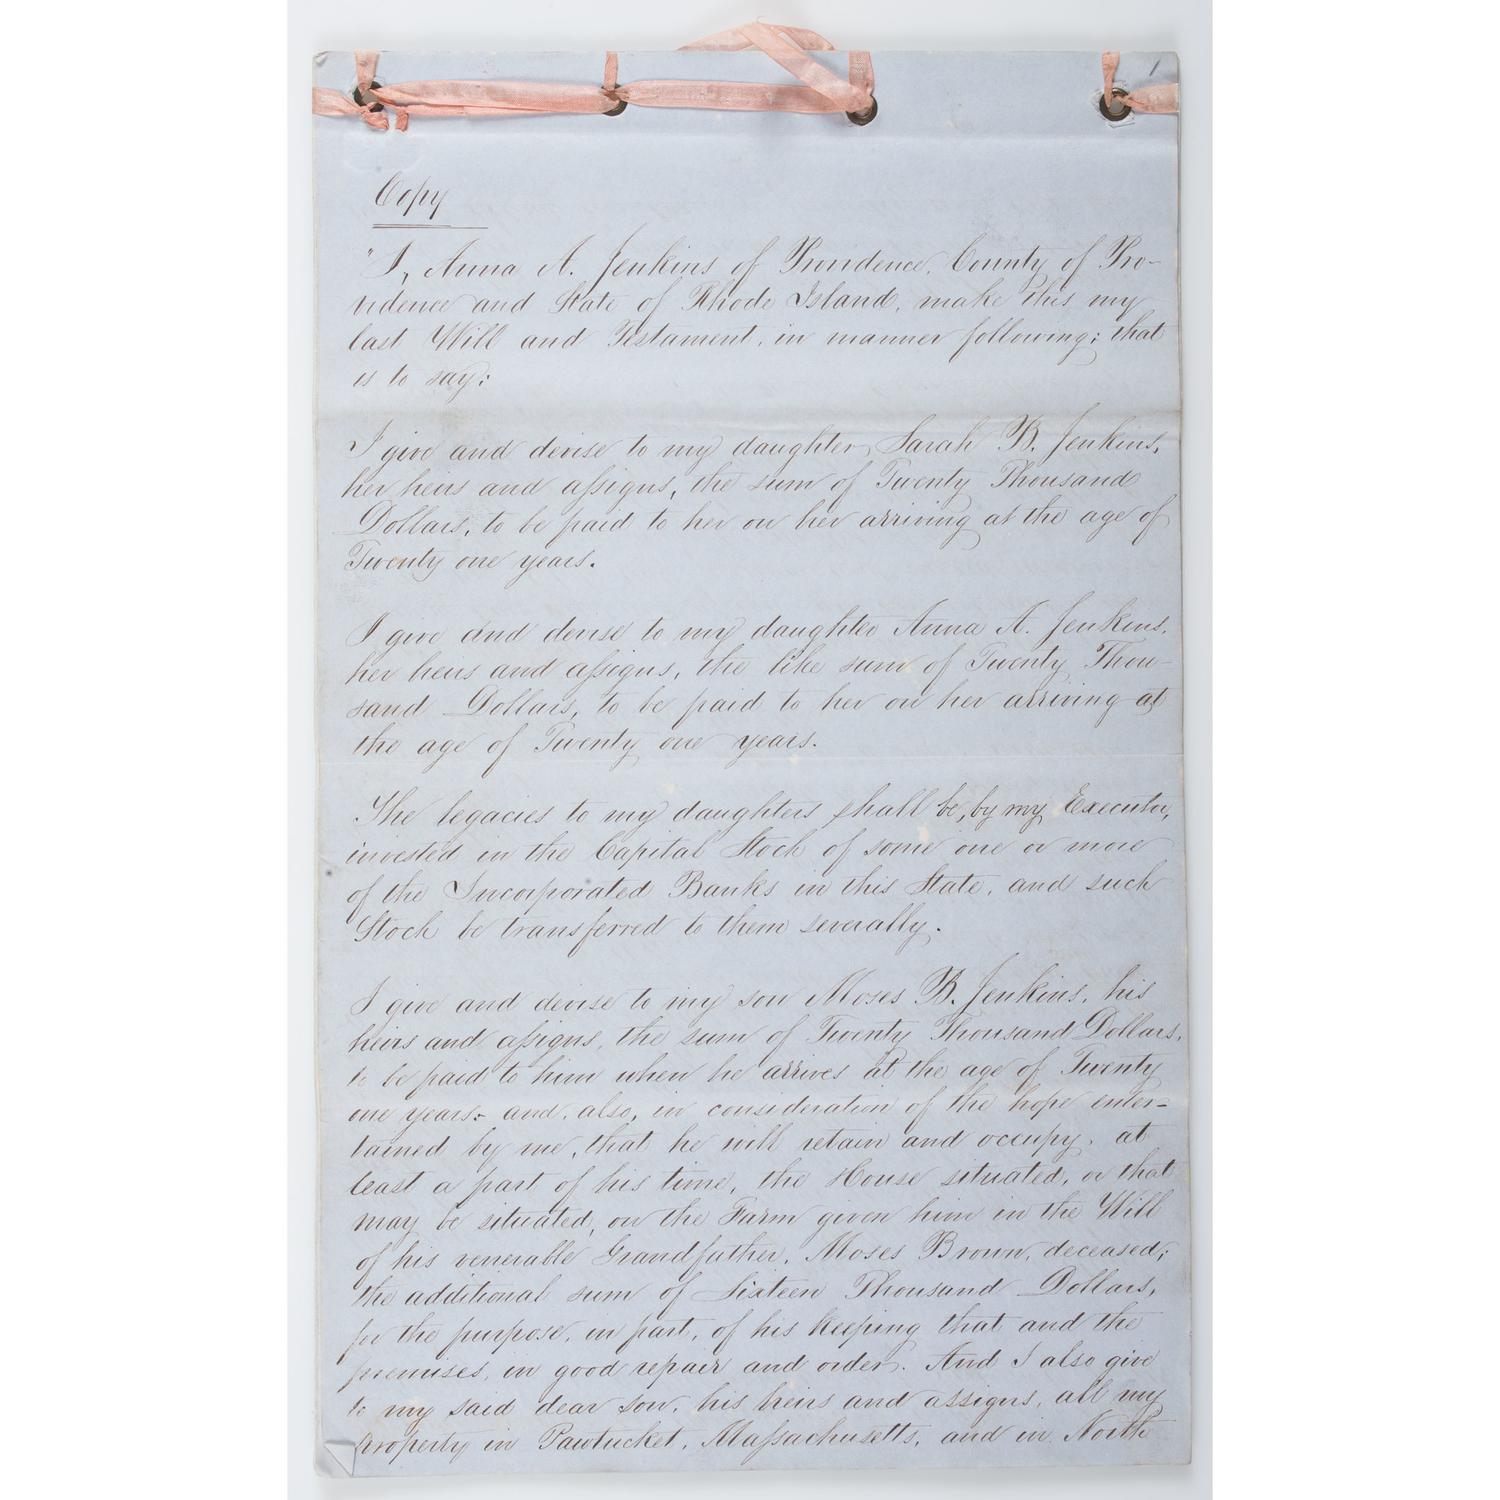 1
Copy
"I, Anna A. Jenkins of Providence, County of Pro-
vidence and State of Rhode Island, make this my
last Will and Testament, in manner following; that
is to say;
I give and devise to my daughter, Sarah B. Jenkins,
her heirs and assigns, the sum of Twenty Thousand
Dollars, to be paid to her on her arriving at the age of
Twenty one years.
I give and devise to my daughter Anna A. Jenkins,
her heirs and assigns, the like sum of Twenty Thou-
sand Dollars, to be paid to her on her arriving at
the age of Twenty one years.
The legacies to my daughters shall be, by my Executor,
invested in the Capital Stock of some one or more
of the Incorporated Banks in this State, and such
Stock be transferred to them severally.
I give and devise to my son Moses B. Jenkins, his
heirs and assigns, the sum of Twenty Thousand Dollars,
to be paid to him when he arrives at the age of Twenty
one years- and, also, in consideration of the hope enter-
tained by me, that he will retain and occupy, at
least a part of his time, the House situated, or that
may be situated, on the Farm given him in the Will
of his venerable Grandfather, Moses Brown, deceased;
the additional sum of Sixteen Thousand Dollars,
for the purpose, in part, of his keeping that and the
premises, in good repair and order. And I also give
to my said dear son, his heirs and assigns, all my
property in Pawtucket, Massachusetts, and in North